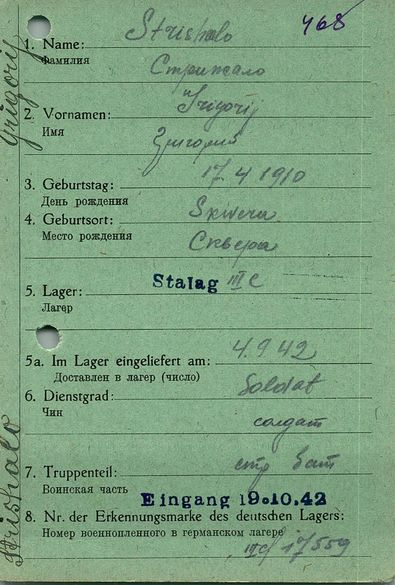 468
Strishalo
1. Name:
Фамилия
Стрижало
Grigorij
2. Vornamen:
Имя
Григорий
17.4 1910
3. Geburtstag:
День рождения
Skwera
4. Geburtsort:
Место рождения
Сквера
Stalag III C
5. Lager:
Лагер
4.9.42
5a. Im Lager eingeliefert am:
Доставлен в лагер (число)
Soldat
6. Dienstgrad:
Чин
солдат
стр бат
7. Truppenteil:
Воинская часть
Eingang 19.10.42
8. Nr. der Erkennungsmarke des deutschen Lagers:
Номер военнопленного в германском лагере
IIIC/ 17559
Strishalo Grigorij